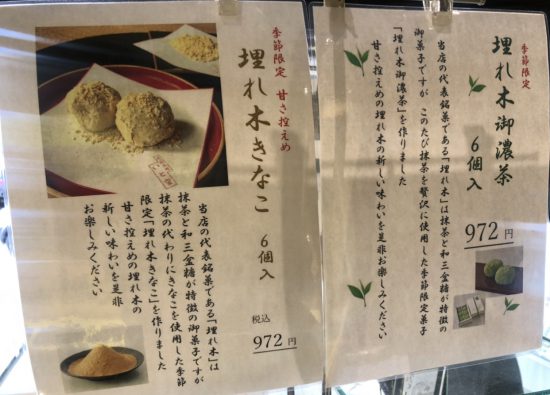 季節限定
埋れ木御濃茶
6個入
972円
当店の代表銘菓である「埋れ木」は抹茶と和三盆糖が特徴の
御菓子ですが このたび抹茶を贅沢に使用した季節限定菓子
「埋れ木御濃茶」を作りました
甘さ控えめの埋れ木の新しい味わいを是非お楽しみください
季節限定 甘さ控えめ
埋れ木きなこ
6個入
税込
972円
当店の代表銘菓である「埋れ木」は
抹茶と和三盆糖が特徴の御菓子ですが
抹茶の代わりにきなこを使用した季節
限定「埋れ木きなこ」を作りました
甘さ控えめの埋れ木の
新しい味わいを是非
お楽しみください